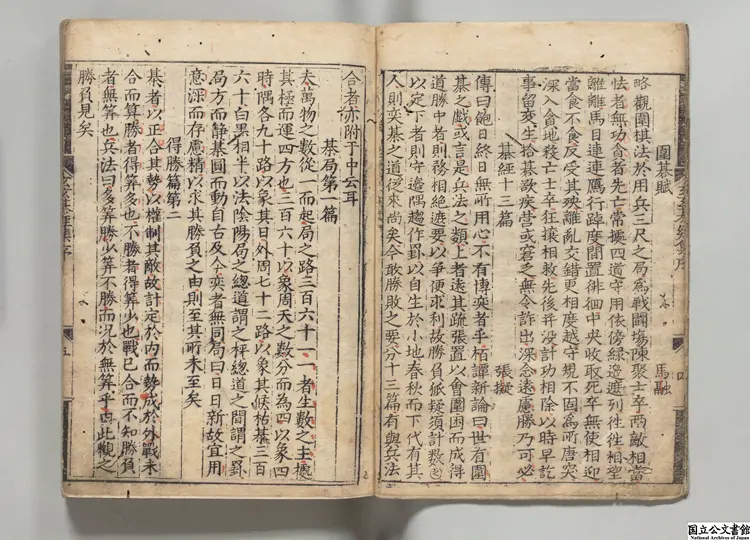 圍棊賦　馬融
略觀圍棋法於用兵三尺之局為戰鬪塲陳聚士卒兩敵相當
怯者無功貪者先亡常據四道守用依傍緣邊遮列徃徃相望
離離馬目連連鴈行踔度間置徘徊中央收取死卒無使相迎
當食不食反受其殃離亂交錯更相度越守規不固為所唐突
深入貪地殺亡士卒狂攘相救先後并没計功相除以時早訖
事留變生拾棊欲疾營或窘乏無令詐出深念遠慮勝乃可必
棊經十三篇　張擬
傳曰飽食終日無所用心不有博奕者乎桓譚新論曰世有圍
棊之戲或言是兵法之類上者遠其疏張置以會圍因而成得
道勝中者則務相絕遮要以爭便求利故勝負狐疑須計數
以定下者則守邊隅趨作罫以自生於小地春秋而下代有其
人則奕棊之道從來尚矣今取勝敗之要分十三篇有與兵法
合者亦附于中云耳
棊局第一篇
夫萬物之數從一而起局之路三百六十一一者生數之主據
其極而運四方也三百六十以象周天之數分而為四以象四
時隅各九十路以象其日外周七十二路以象其候枯棊三百
六十白黑相半以法陰陽局之總道謂之枰總道之間謂之罫
局方而静棊圓而動自古及今奕者無同局曰日日新故宜用
意深而存慮精以求其勝負之由則至其所未至矣
得勝篇第二
棊者以正合其勢以權制其敵故計定於内而勢成於外戰未
合而算勝者得算多也不勝者得算少也戰已合而不知勝負
者無算也兵法曰多算勝少算不勝而况於無算乎由此觀之
勝負見矣
五
四
国立公文書館
National Archives of Japan